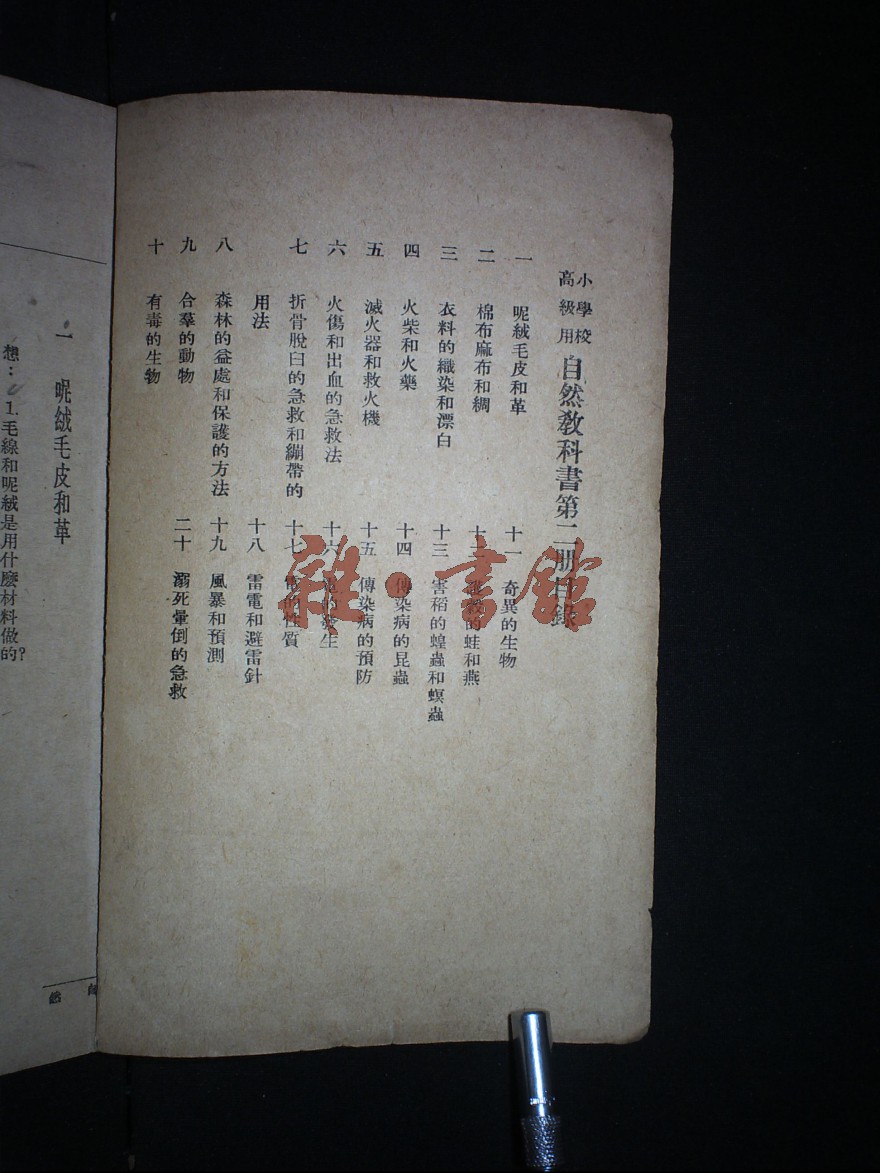 小學校
高級用
自然教科書第二册目錄
一 呢絨毛皮和革
二 棉布麻布和綢
三 衣料的織染和漂白
四 火柴和火藥
五 滅火器和救火機
六 火傷和出血的急救法
七 折骨脫臼的急救和繃帶的
用法
八 森林的益處和保護的方法
九 合羣的動物
十 有毒的生物
十一 奇異的生物
十二 的蛙和燕
十三 害稻的蝗蟲和螟蟲
十四 傳染病的昆蟲
十五 傳染病的預防
十六 發生
十七 電的性質
十八 雷電和避雷針
十九 風暴和預測
二十 溺死暈倒的急救
雜·書館
一 呢絨毛皮和革
想：1.毛線和呢絨是用什麼材料做的？